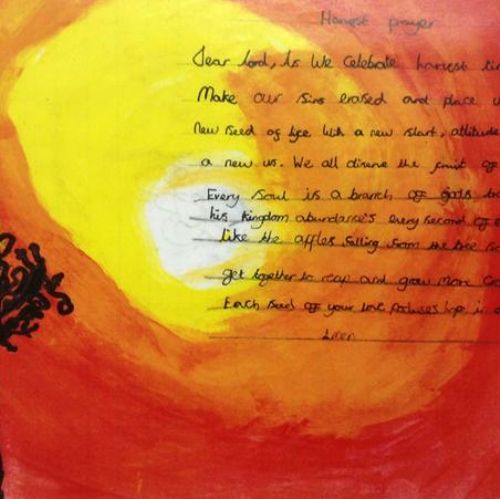 Harvest prayer
Dear lord, As We Celebrate harvest
Make our sins erased and place
New seed of life with a new start, attitude
a new us. We all diserve the fruit of
Every Soul is a branch of gods
his kingdom abundance's every second of
like the apples falling from the tree
get together to reap and grow more
Each seed of your love produces hope in
Amen